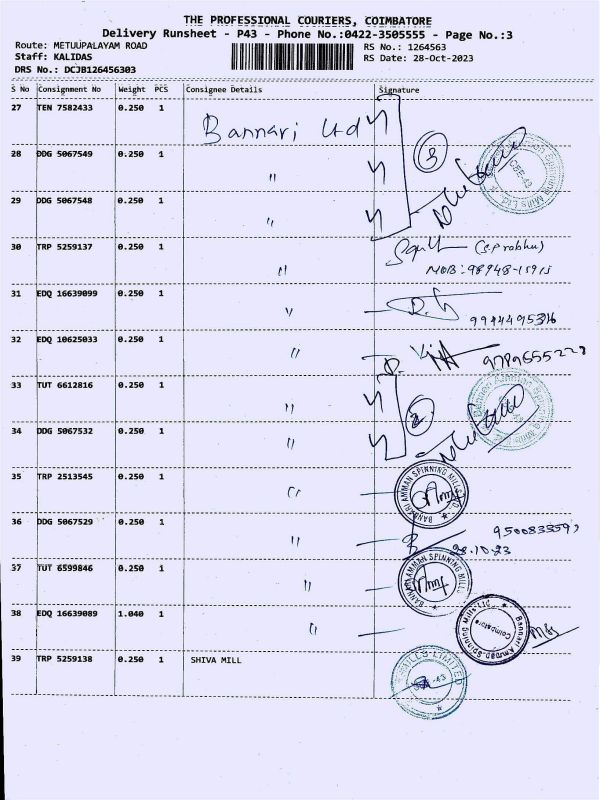 THE PROFESSIONAL COURIERS, COIMBATORE
Delivery Runsheet - P43 - Phone No.:0422-3505555 - Page No.:3
Route: METUUPALAYAM ROAD
RS No.: 1264563
Staff: KALIDAS
RS Date: 28-Oct-2023
DRS No.: DCJB126456303
S No Consignment No Weight PCS Consignee Details Signature
27 TEN 7582433 0.250 1 Bannari Ltd
28 DDG 5067549 0.250 1 "
3
29 DDG 5067548 0.250 1 "
30 TRP 5259137 0.250 1 "
31 EDQ 16639099 0.250 1 "
32 EDQ 10625033 0.250 1 "
33 TUT 6612816 0.250 1 "
2
34 DDG 5067532 0.250 1 "
35 TRP 2513545 0.250 1 "
BANNARI AMMAN SPINNING MILLS
36 DDG 5067529 0.250 1 "
28.10.23
37 TUT 6599846 0.250 1 "
BANNARI AMMAN SPINNING MILLS
38 EDQ 16639089 1.040 1 "
Bannari Amman Spinning Mills Ltd. Coimbatore
39 TRP 5259138 0.250 1 SHIVA MILL
MILLS LIMITED